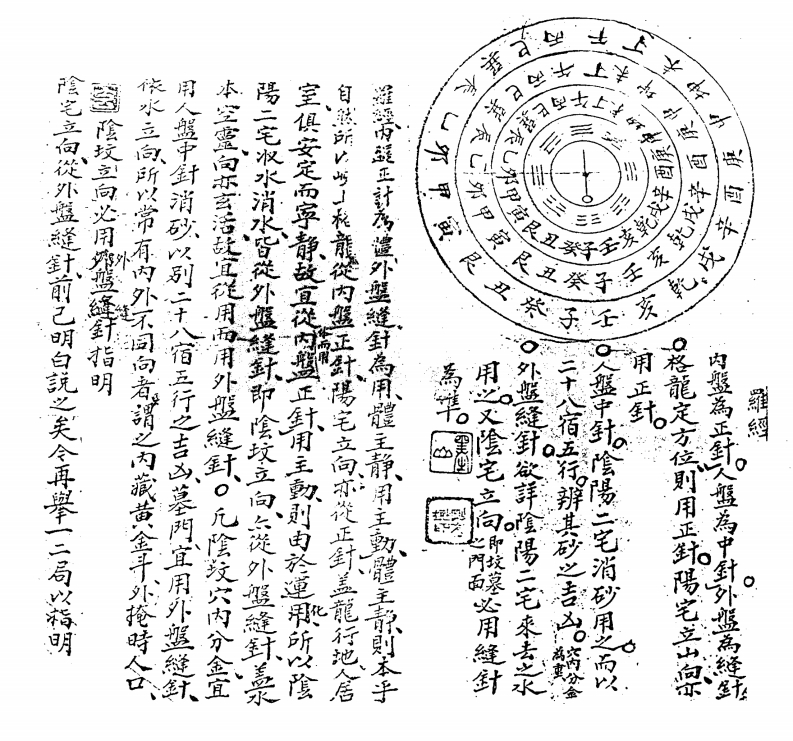 羅經
內盤為正針。人盤為中針。外盤為縫針。
格龍定方位則用正針。陽宅立山向亦
用正針。
人盤中針。陰陽二宅消砂用之。而以
二十八宿五行。辨其砂之吉凶。穴內分金為重
外盤縫針。欲詳陰陽二宅來去之水
用之。又陰宅立向。即坟墓之門面必用縫針
為準。
庚酉辛戌乾亥壬子癸丑艮寅甲卯乙辰巽巳丙午丁未坤申
庚酉辛戌乾亥壬子癸丑艮寅甲卯乙辰巽巳丙午丁未坤申
庚酉辛戌乾亥壬子癸丑艮寅甲卯乙辰巽巳丙午丁未坤申
羅經內盤正針為體、外盤縫針為用、體主靜、用主動、體主靜、則本乎
自然所以格龍從內盤正針、陽宅立向亦從正針、盖龍行地、人居
室、俱安定而寧靜、故宜從內盤正針、用主動、則由於運用化、所以陰
陽二宅收水消水、皆從外盤縫針、即陰坟立向、亦從外盤縫針、盖水
本空靈、向亦玄活、故宜從用而用外盤縫針、○凡陰坟穴內分金宜
用人盤中針消砂、以別二十八宿五行之吉凶、墓門宜用外盤縫針、
依水立向、所以常有內外不同向者、謂之內藏黃金斗、外掩時人口、
陰坟立向必用外盤縫針指明
陰宅立向、從外盤縫針、前已明白說之矣、今再舉一二局以指明